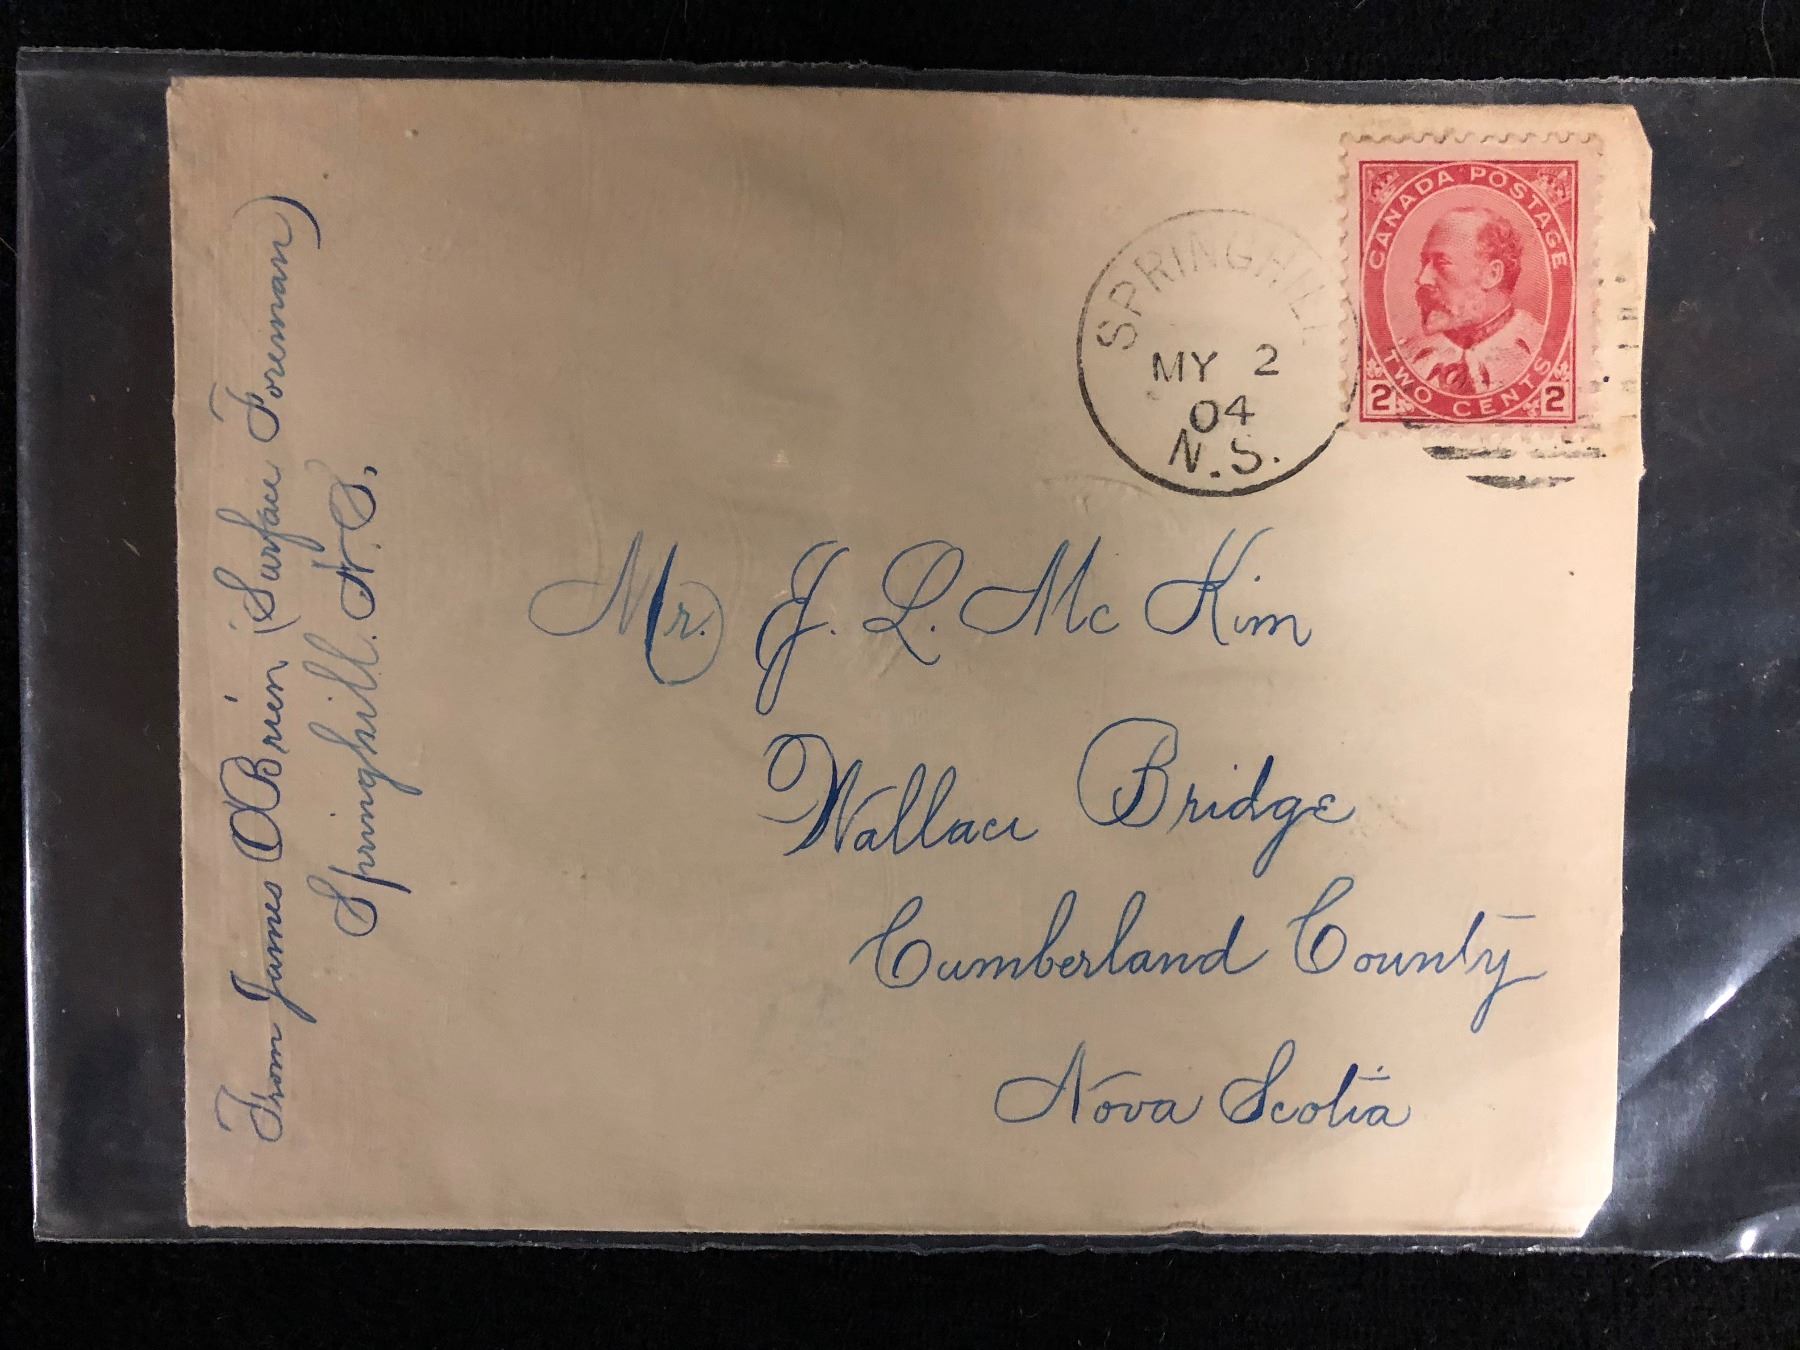 From James O'Brien (Surface Foreman)
Springhill. N.S.
CANADA POSTAGE
TWO CENTS
2 2
SPRINGHILL
MY 2
04
N.S.
Mr. J. L. McKim
Wallace Bridge
Cumberland County
Nova Scotia